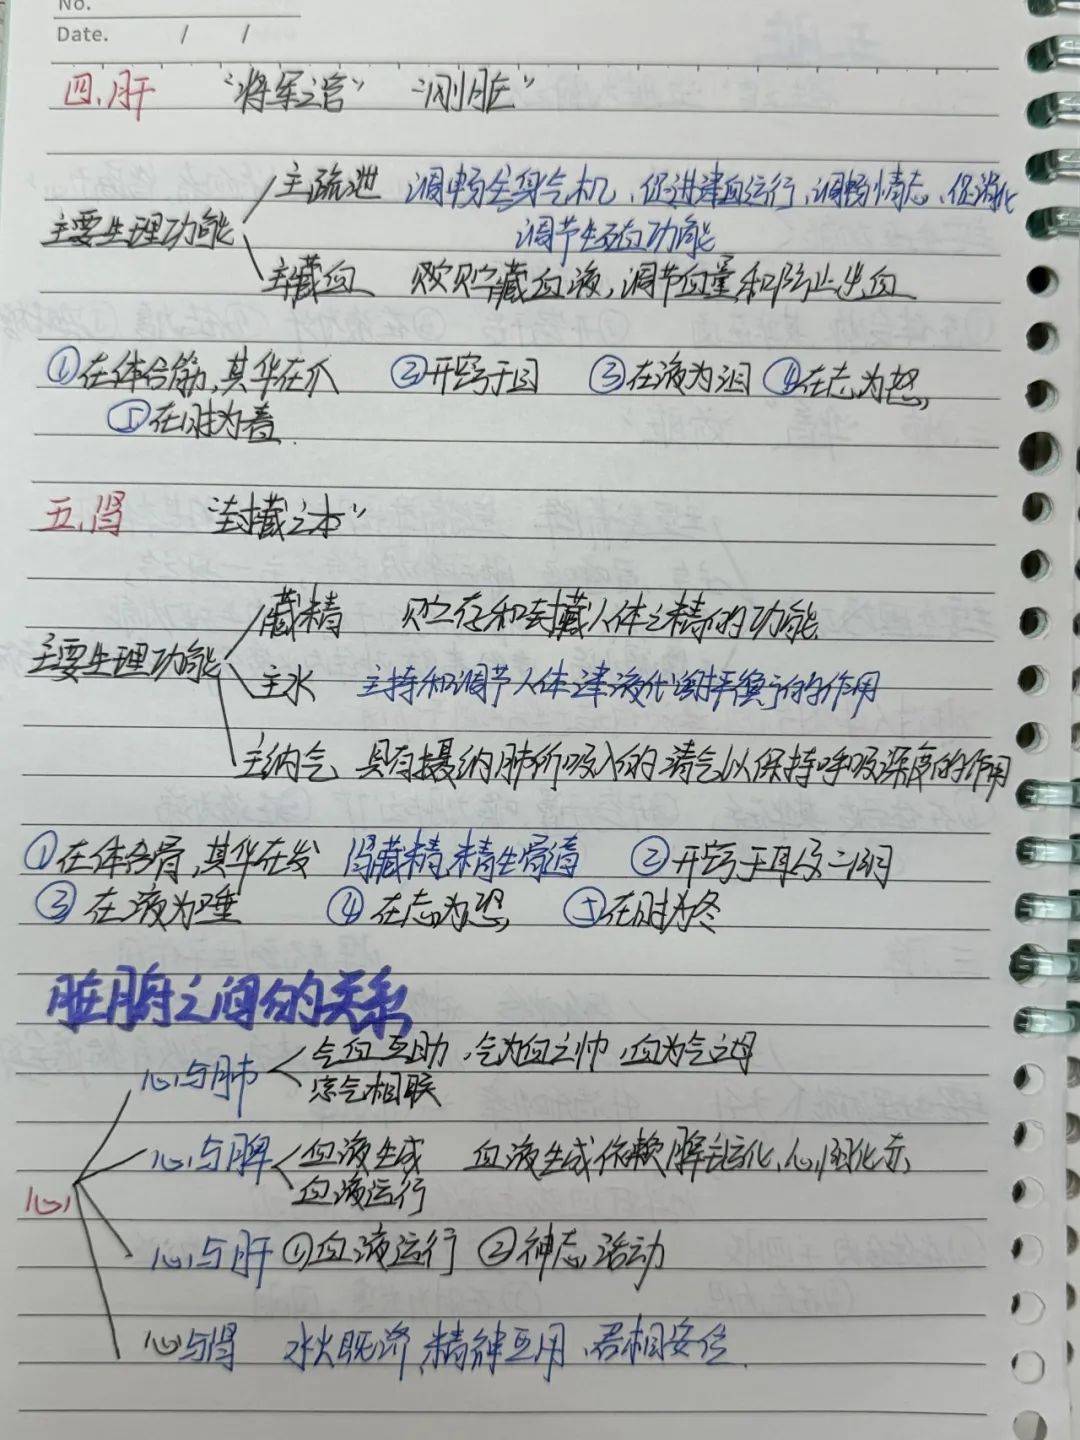 No.
Date.    /    /
四.肝 "将军之官" "刚脏"
主疏泄 调畅全身气机、促进津血运行、调畅情志、促消化
主要生理功能 调节生殖功能
主藏血 贮藏血液,调节血量和防止出血
①在体合筋,其华在爪 ②开窍于目 ③在液为泪 ④在志为怒,
⑤在时为春.
五.肾 "封藏之本"
藏精 贮存和封藏人体之精的功能
主要生理功能
主水 主持和调节人体津液代谢平衡的作用
主纳气 具有摄纳肺所吸入的清气以保持呼吸深度的作用
①在体合骨,其华在发 肾藏精,精生骨髓 ②开窍于耳及二阴
③在液为唾 ④在志为恐, ⑤在时为冬
脏腑之间的关系
气血互助、气为血之帅、血为气之母
心与肺
宗气相联
心与脾 血液生成 血液生成依赖脾主运化、心阳化赤,
血液运行
心
心与肝 ①血液运行 ②神志活动
心与肾 水火既济,精神互用、君相安位.